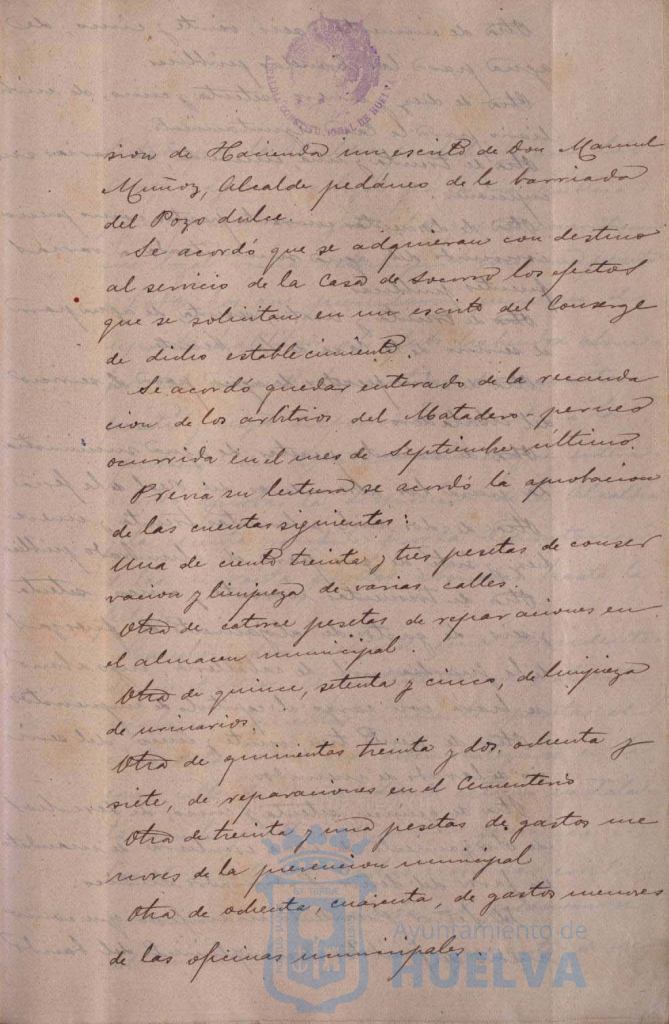 ALCALDIA CONSTITUCIONAL DE HUELVA
sion de Hacienda un escrito de Don Manuel
Muñoz, Alcalde pedáneo de la barriada
del Pozo dulce.
Se acordó que se adquieran con destino
al servicio de la Casa de Socorro los efectos
que se solicitan en un escrito del Conserge
de dicho establecimiento.
Se acordó quedar enterado de la recauda
cion de los arbitrios del Matadero-perneo
ocurrida en el mes de Septiembre último.
Previa su lectura se acordó la aprobacion
de las cuentas siguientes:
Una de ciento treinta y tres pesetas de conser
vacion y limpieza de varias calles.
Otra de catorce pesetas de reparaciones en
el almacen municipal.
Otra de quince, setenta y cinco, de limpieza
de urinarios.
Otra de quinientas treinta y dos, ochenta y
siete, de reparaciones en el Cementerio
Otra de treinta y una pesetas de gastos me
nores de la prevencion municipal
Otra de ochenta, cuarenta, de gastos menores
de las oficinas municipales.
Ayuntamiento de
HUELVA